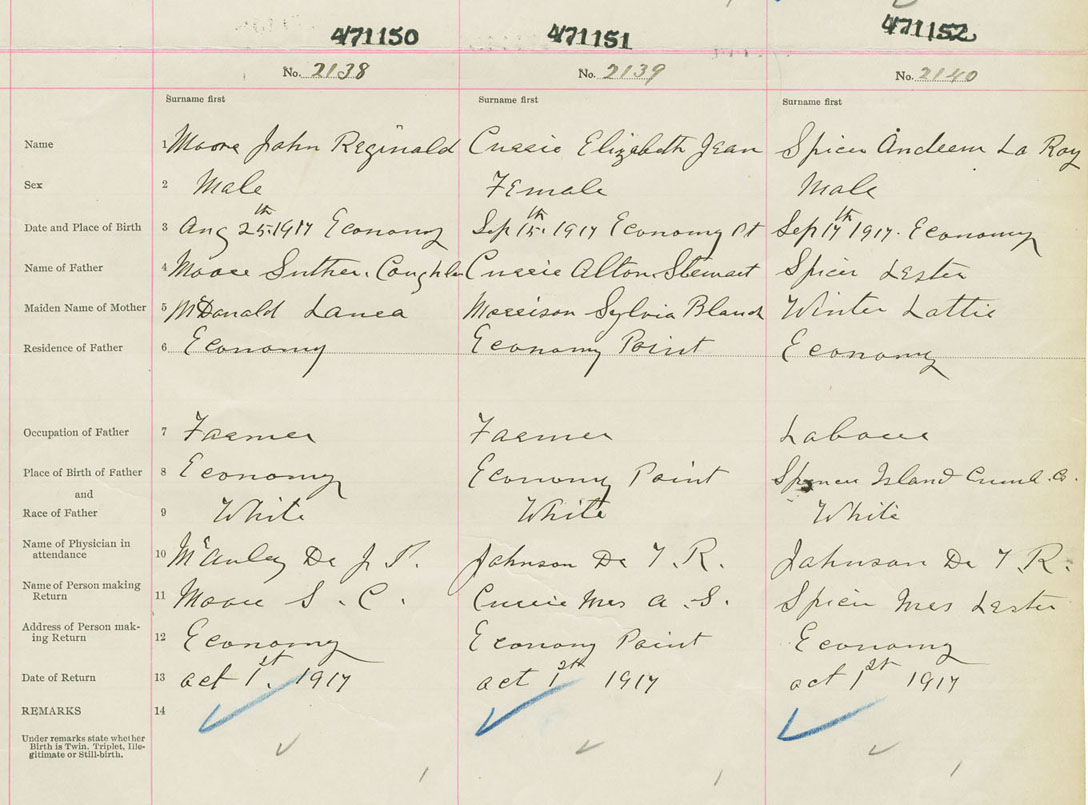 471150 471151 471152
No. 2138 No. 2139 No. 2140
Surname first Surname first Surname first
Name 1 Moore John Reginald Currie Elizabeth Jean Spicer La Roy
Sex 2 Male Female Male
Date and Place of Birth 3 Aug 25th 1917 Economy Sep 15th 1917 Economy Pt Sep 17th 1917. Economy
Name of Father 4 Moore Suther. Coughlan Currie Alton Stewart Spicer Lester
Maiden Name of Mother 5 McDonald Laura Morrison Sylvia Blanch Winter Lottie
Residence of Father 6 Economy Economy Point Economy
Occupation of Father 7 Farmer Farmer Labour
Place of Birth of Father 8 Economy Economy Point Island Co.
and
Race of Father 9 White White White
Name of Physician in
attendance 10 McAulay Dr J. P. Johnson Dr T. R. Johnson Dr T. R.
Name of Person making
Return 11 Moore S. C. Currie Mrs A. S. Spicer Mrs Lester
Address of Person mak-
ing Return 12 Economy Economy Point Economy
Date of Return 13 Oct 1st. 1917 Oct 1917 Oct 1st 1917
REMARKS 14
Under remarks state whether
Birth is Twin, Triplet, Ille-
gitimate or Still-birth.